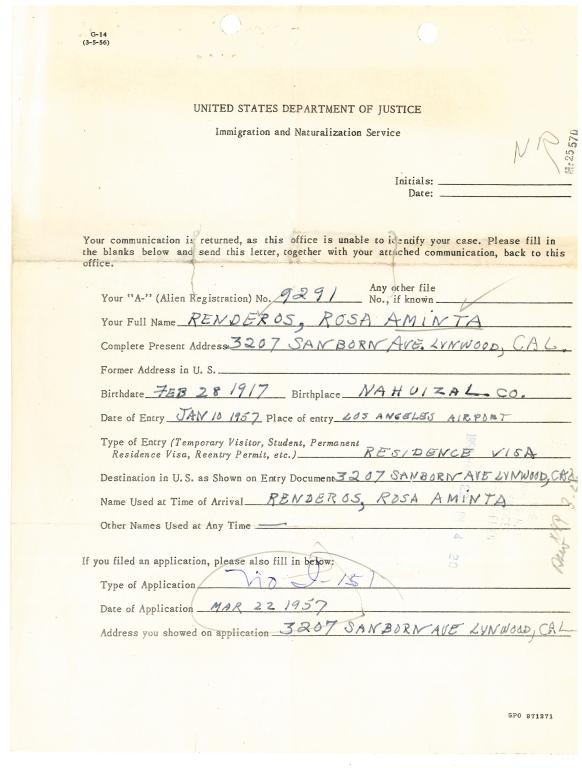 G-14
(3-5-56)
UNITED STATES DEPARTMENT OF JUSTICE
Immigration and Naturalization Service
NR
Mr25570
Initials:
Date:
Your communication is returned, as this office is unable to identify your case. Please fill in
the blanks below and send this letter, together with your attached communication, back to this
office.
Your "A-" (Alien Registration) No. 9291 Any other file No., if known
Your Full Name RENDEROS, ROSA AMINTA
Complete Present Address 3207 SANBORN AVE. LYNWOOD, CAL.
Former Address in U. S.
Birthdate FEB 28 1917 Birthplace NAHUIZAL CO.
Date of Entry JAN 10 1957 Place of entry LOS ANGELES AIRPORT
Type of Entry (Temporary Visitor, Student, Permanent
Residence Visa, Reentry Permit, etc.) RESIDENCE VISA
Destination in U. S. as Shown on Entry Document 3207 SANBORN AVE LYNWOOD, CAL
Name Used at Time of Arrival RENDEROS, ROSA AMINTA
Other Names Used at Any Time —
If you filed an application, please also fill in below:
Type of Application No I-151
Date of Application MAR 22 1957
Address you showed on application 3207 SANBORN AVE LYNWOOD, CAL
GPO 971371